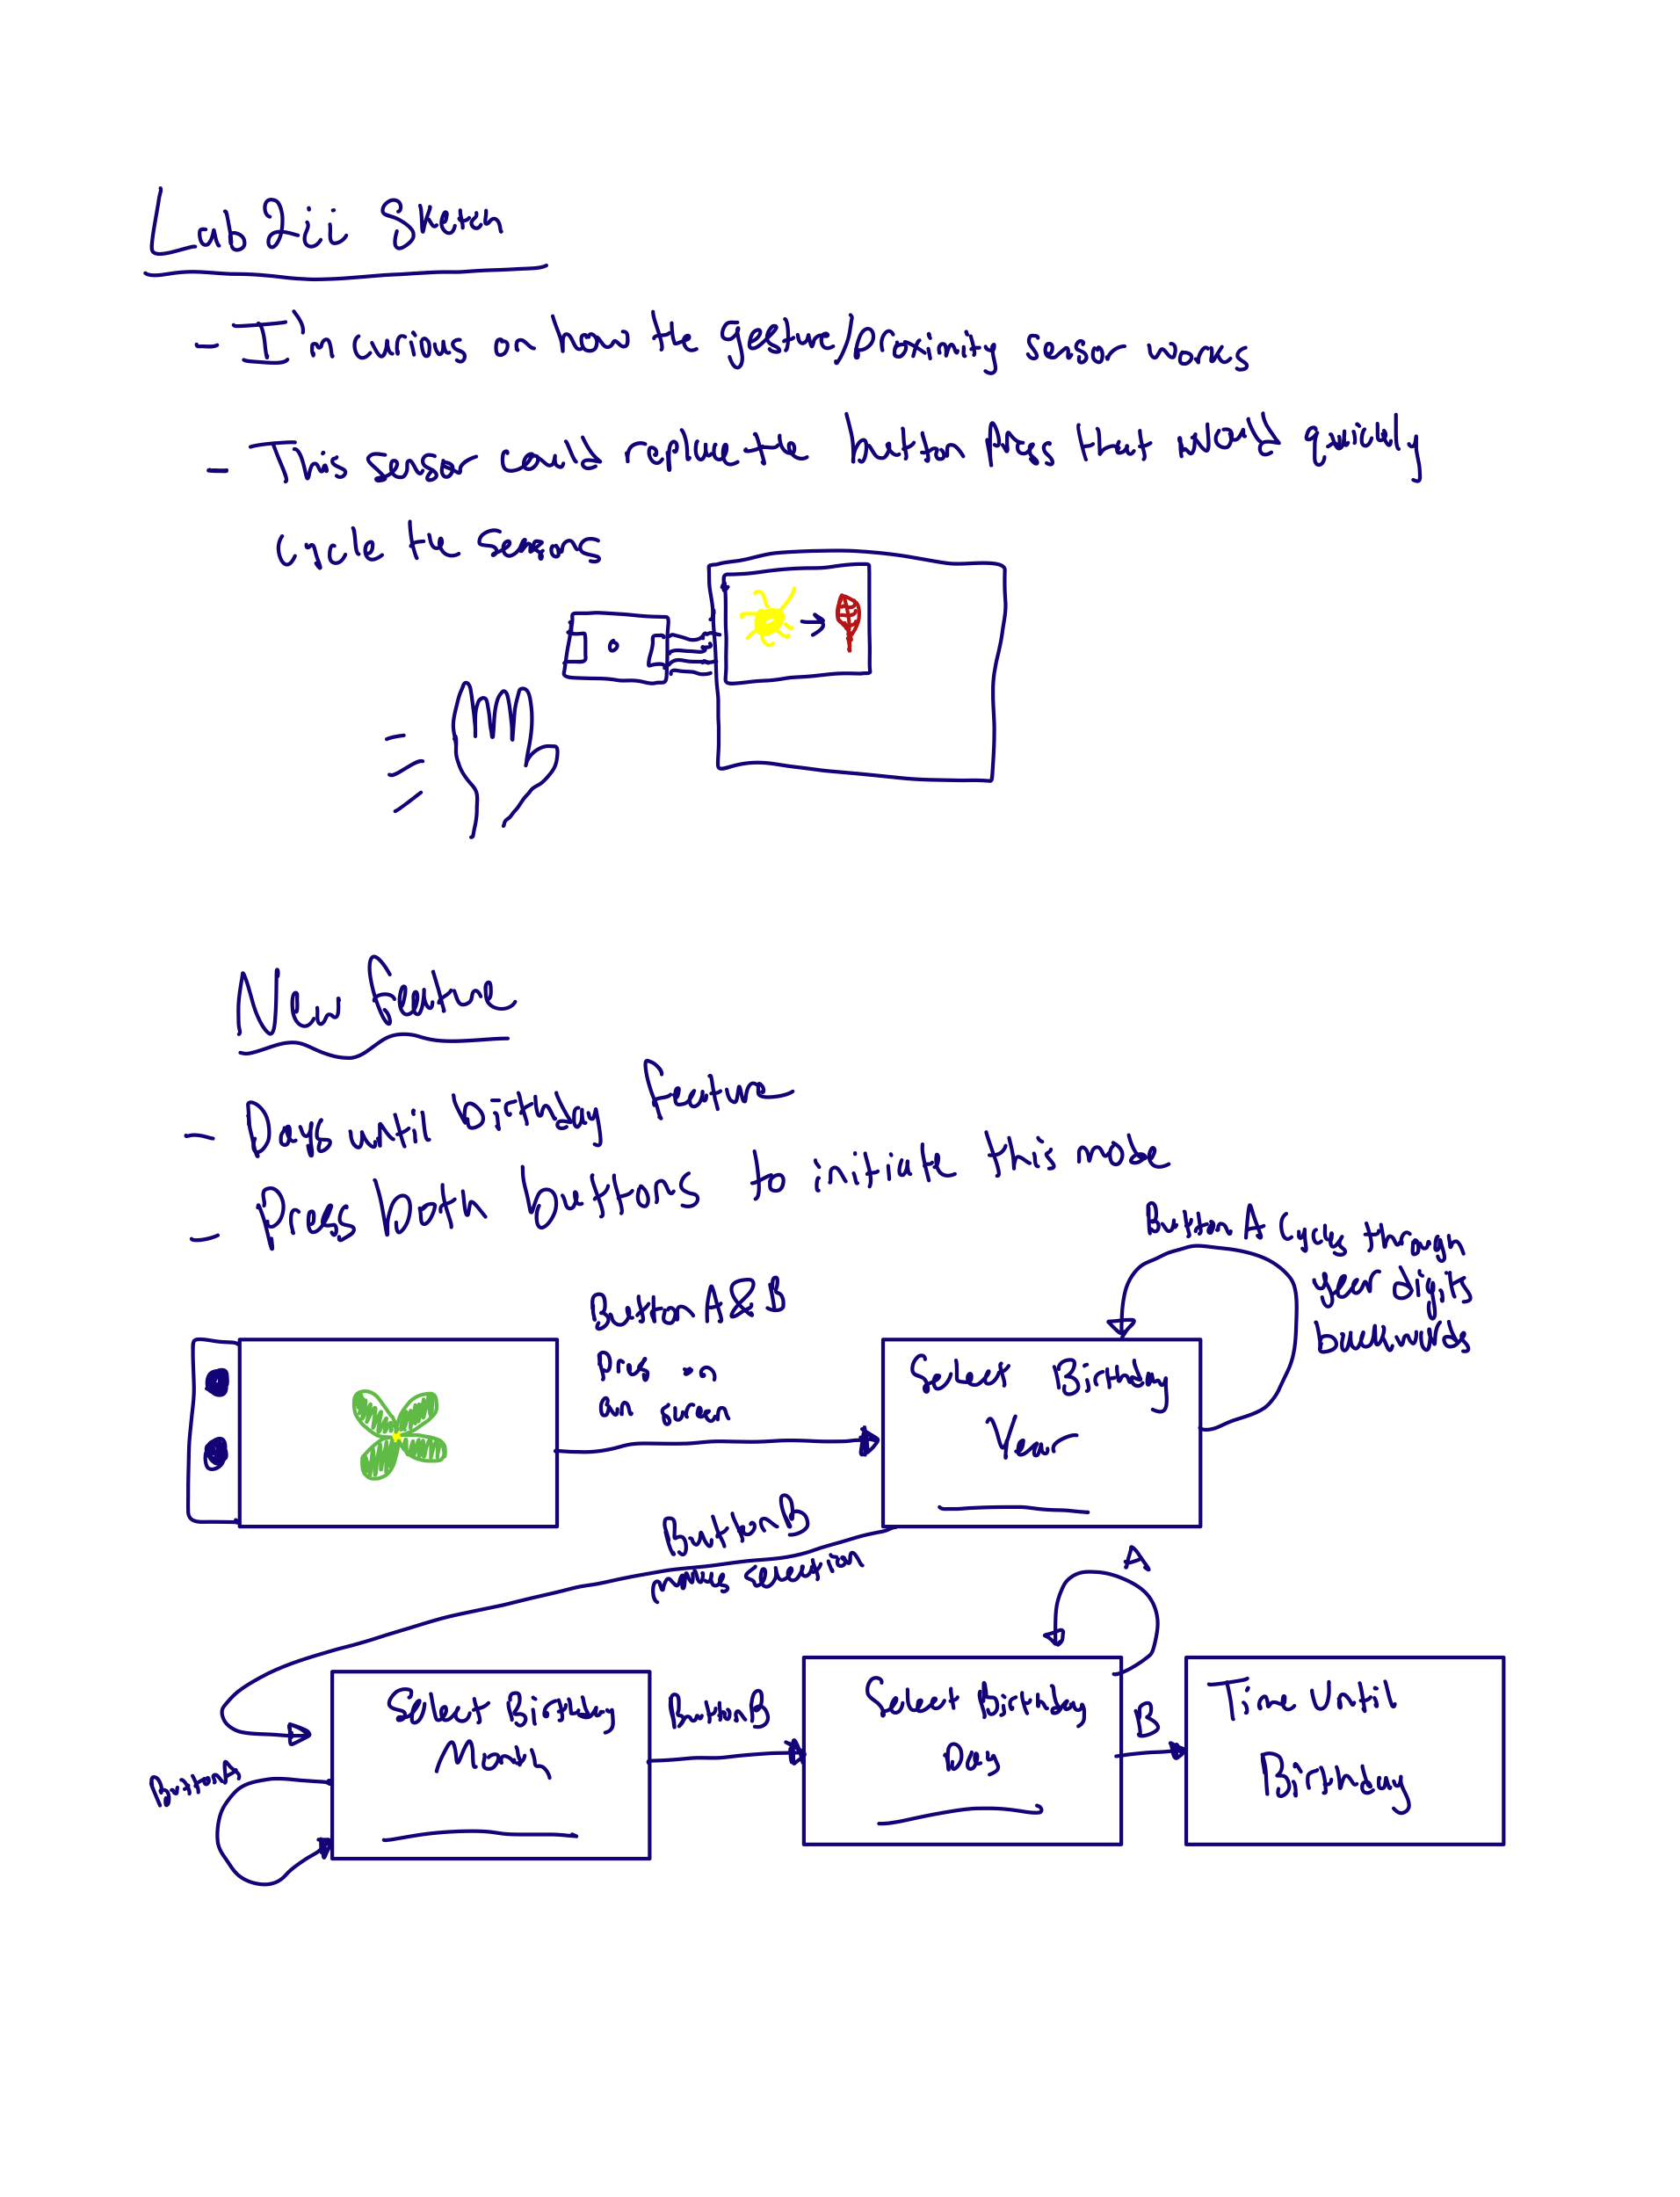 Lab 2ii Sketch
- I'm curious on how the gesture/proximity sensor works
- This sensor could replace the button press that would quickly
cycle the seasons
New Feature
- Days until birthday feature
- Press both buttons to initiate this mode
Button A Cycles through
year digits
backwards
Button A&B
Press on
an screen
Select Birthday
Year
Button B
makes selection
A
Select Birthday
Month
Button B
Select Birthday
Day
B
Time Until
Birthday
Button A